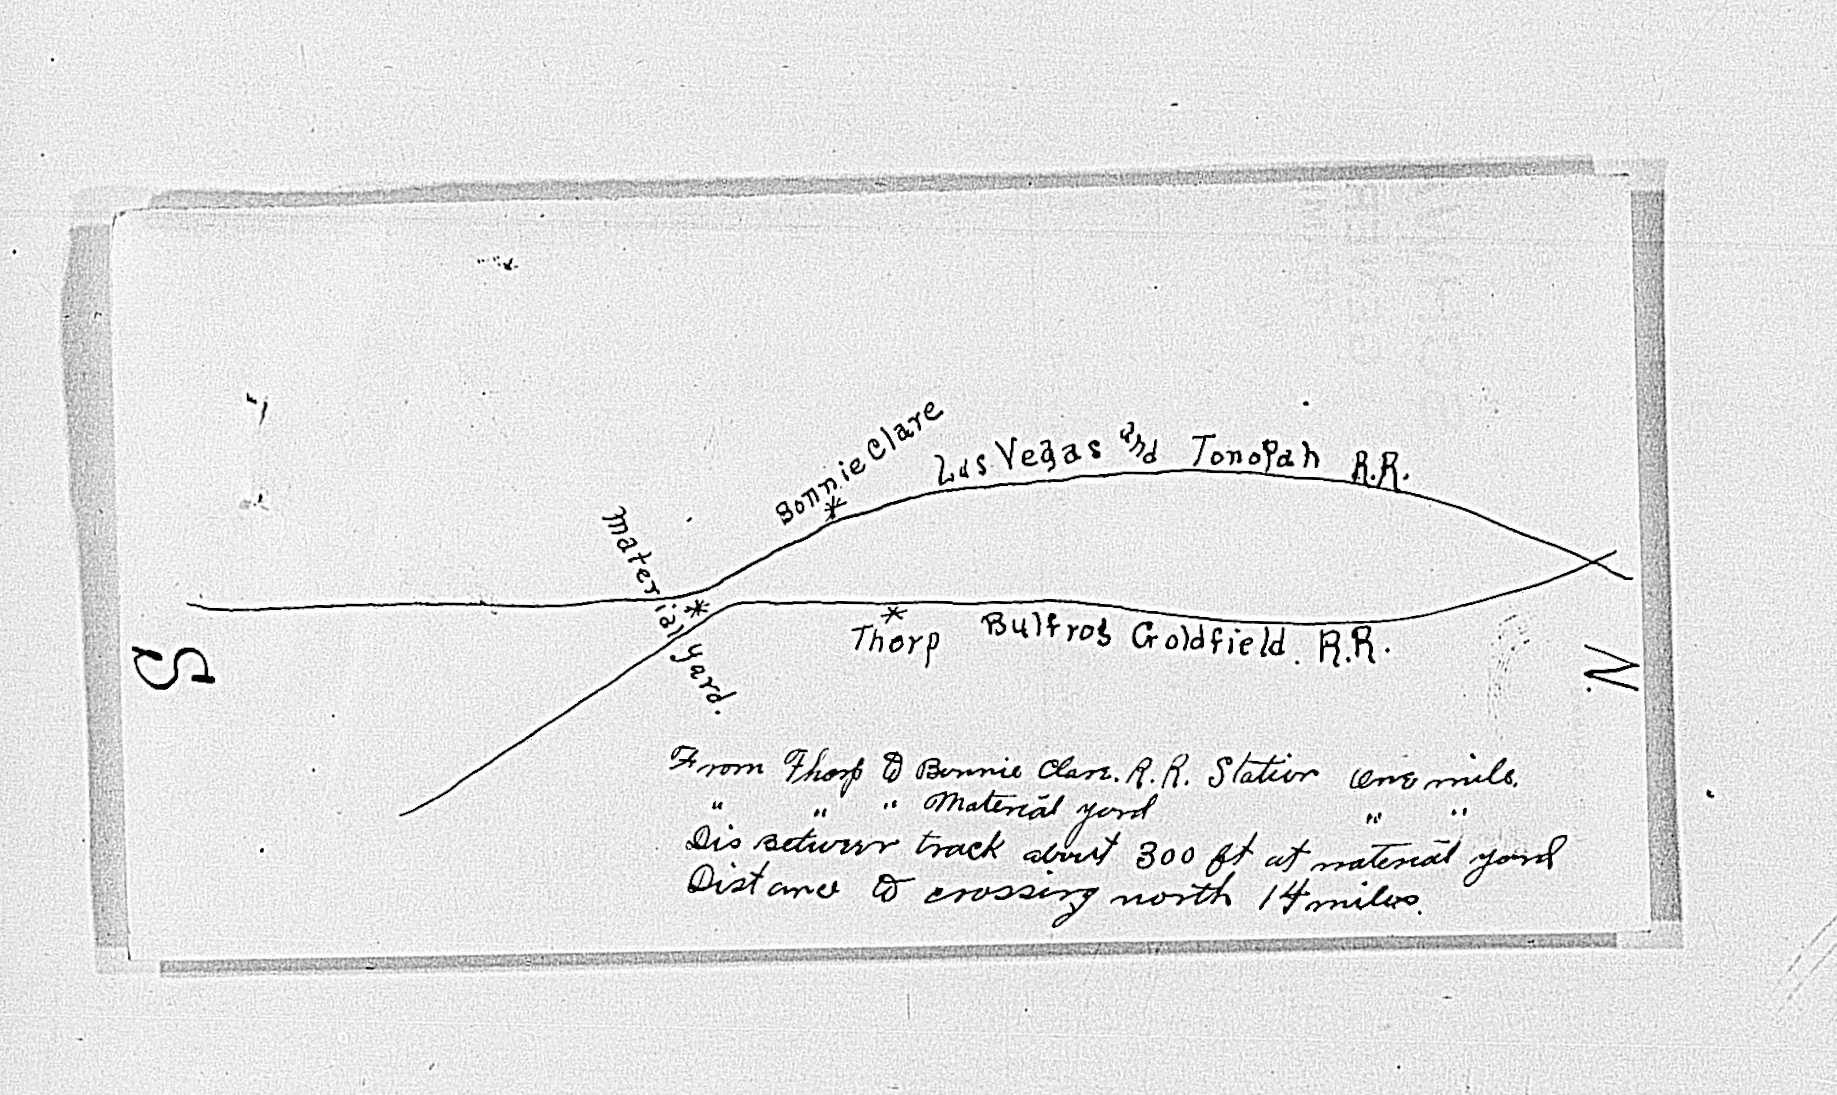 Bonnie Clare
Las Vegas and Tonopah R.R.
Material yard.
Thorp
Bulfrog Goldfield. R.R.
S
N
From Thorp to Bonnie Clare. R.R. Station one mile.
" " " Material yard " "
Dis between track about 300 ft at material yard
Distance to crossing north 14 miles.